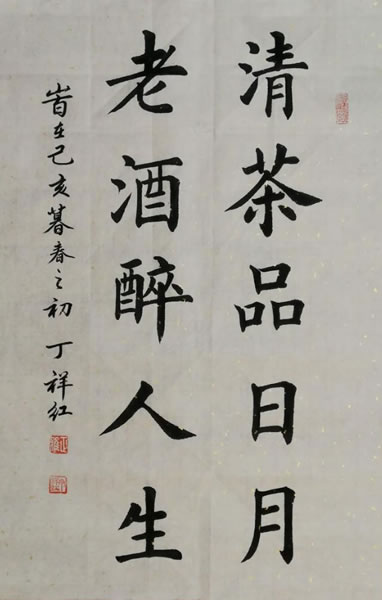 清茶品日月
老酒醉人生
峕在己亥暮春之初 丁祥红